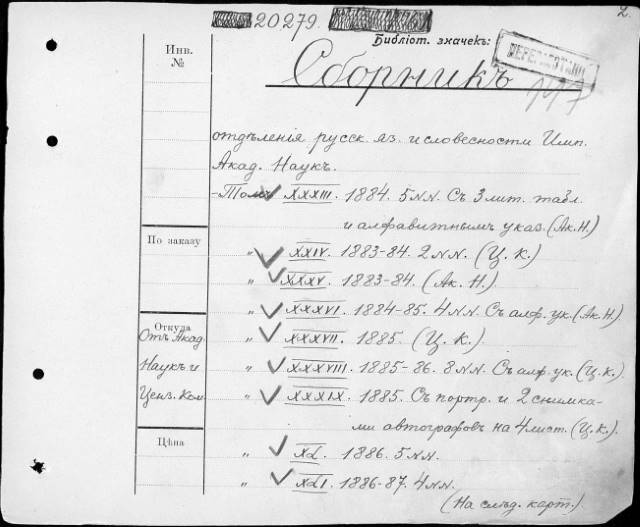 2.
20279.
Библіот. значекъ:
Инв.
№
Сборникъ
отдѣленія русск. яз. и словесности Имп.
Акад. Наукъ.
Томъ XXXIII. 1884. 5 NN. Съ 3 лит. табл.
и алфавитнымъ указ. (Ак. Н.)
По заказу
" XXIV. 1883-84. 2 NN. (Ц. К.)
" XXXV. 1883-84. (Ак. Н.)
" XXXVI. 1884-85. 4 NN. Съ алф. ук. (Ак. Н.)
Откуда
Отъ Акад.
Наукъ и
Ценз. Ком
" XXXVII. 1885. (Ц. К.)
" XXXVIII. 1885-86. 8 NN. Съ алф. ук. (Ц. К.)
" XXXIX. 1885. Съ портр. и 2 снимка-
ми автографовъ на 4 лист. (Ц. К.)
Цѣна
" XL. 1886. 5 NN.
" XLI. 1886-87. 4 NN.
(На слѣд. карт.)